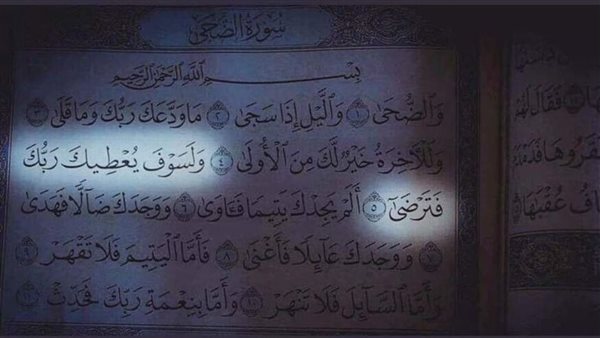 سُورَةُ الضُّحَىٰ
بِسْمِ اللَّهِ الرَّحْمَٰنِ الرَّحِيمِ
وَالضُّحَىٰ ١ وَاللَّيْلِ إِذَا سَجَىٰ ٢ مَا وَدَّعَكَ رَبُّكَ وَمَا قَلَىٰ ٣
وَلَلْآخِرَةُ خَيْرٌ لَّكَ مِنَ الْأُولَىٰ ٤ وَلَسَوْفَ يُعْطِيكَ رَبُّكَ
فَتَرْضَىٰ ٥ أَلَمْ يَجِدْكَ يَتِيمًا فَآوَىٰ ٦ وَوَجَدَكَ ضَالًّا فَهَدَىٰ
٧ وَوَجَدَكَ عَائِلًا فَأَغْنَىٰ ٨ فَأَمَّا الْيَتِيمَ فَلَا تَقْهَرْ ٩
وَأَمَّا السَّائِلَ فَلَا تَنْهَرْ ١٠ وَأَمَّا بِنِعْمَةِ رَبِّكَ فَحَدِّثْ ١١
فَقَالَ لَهُمْ